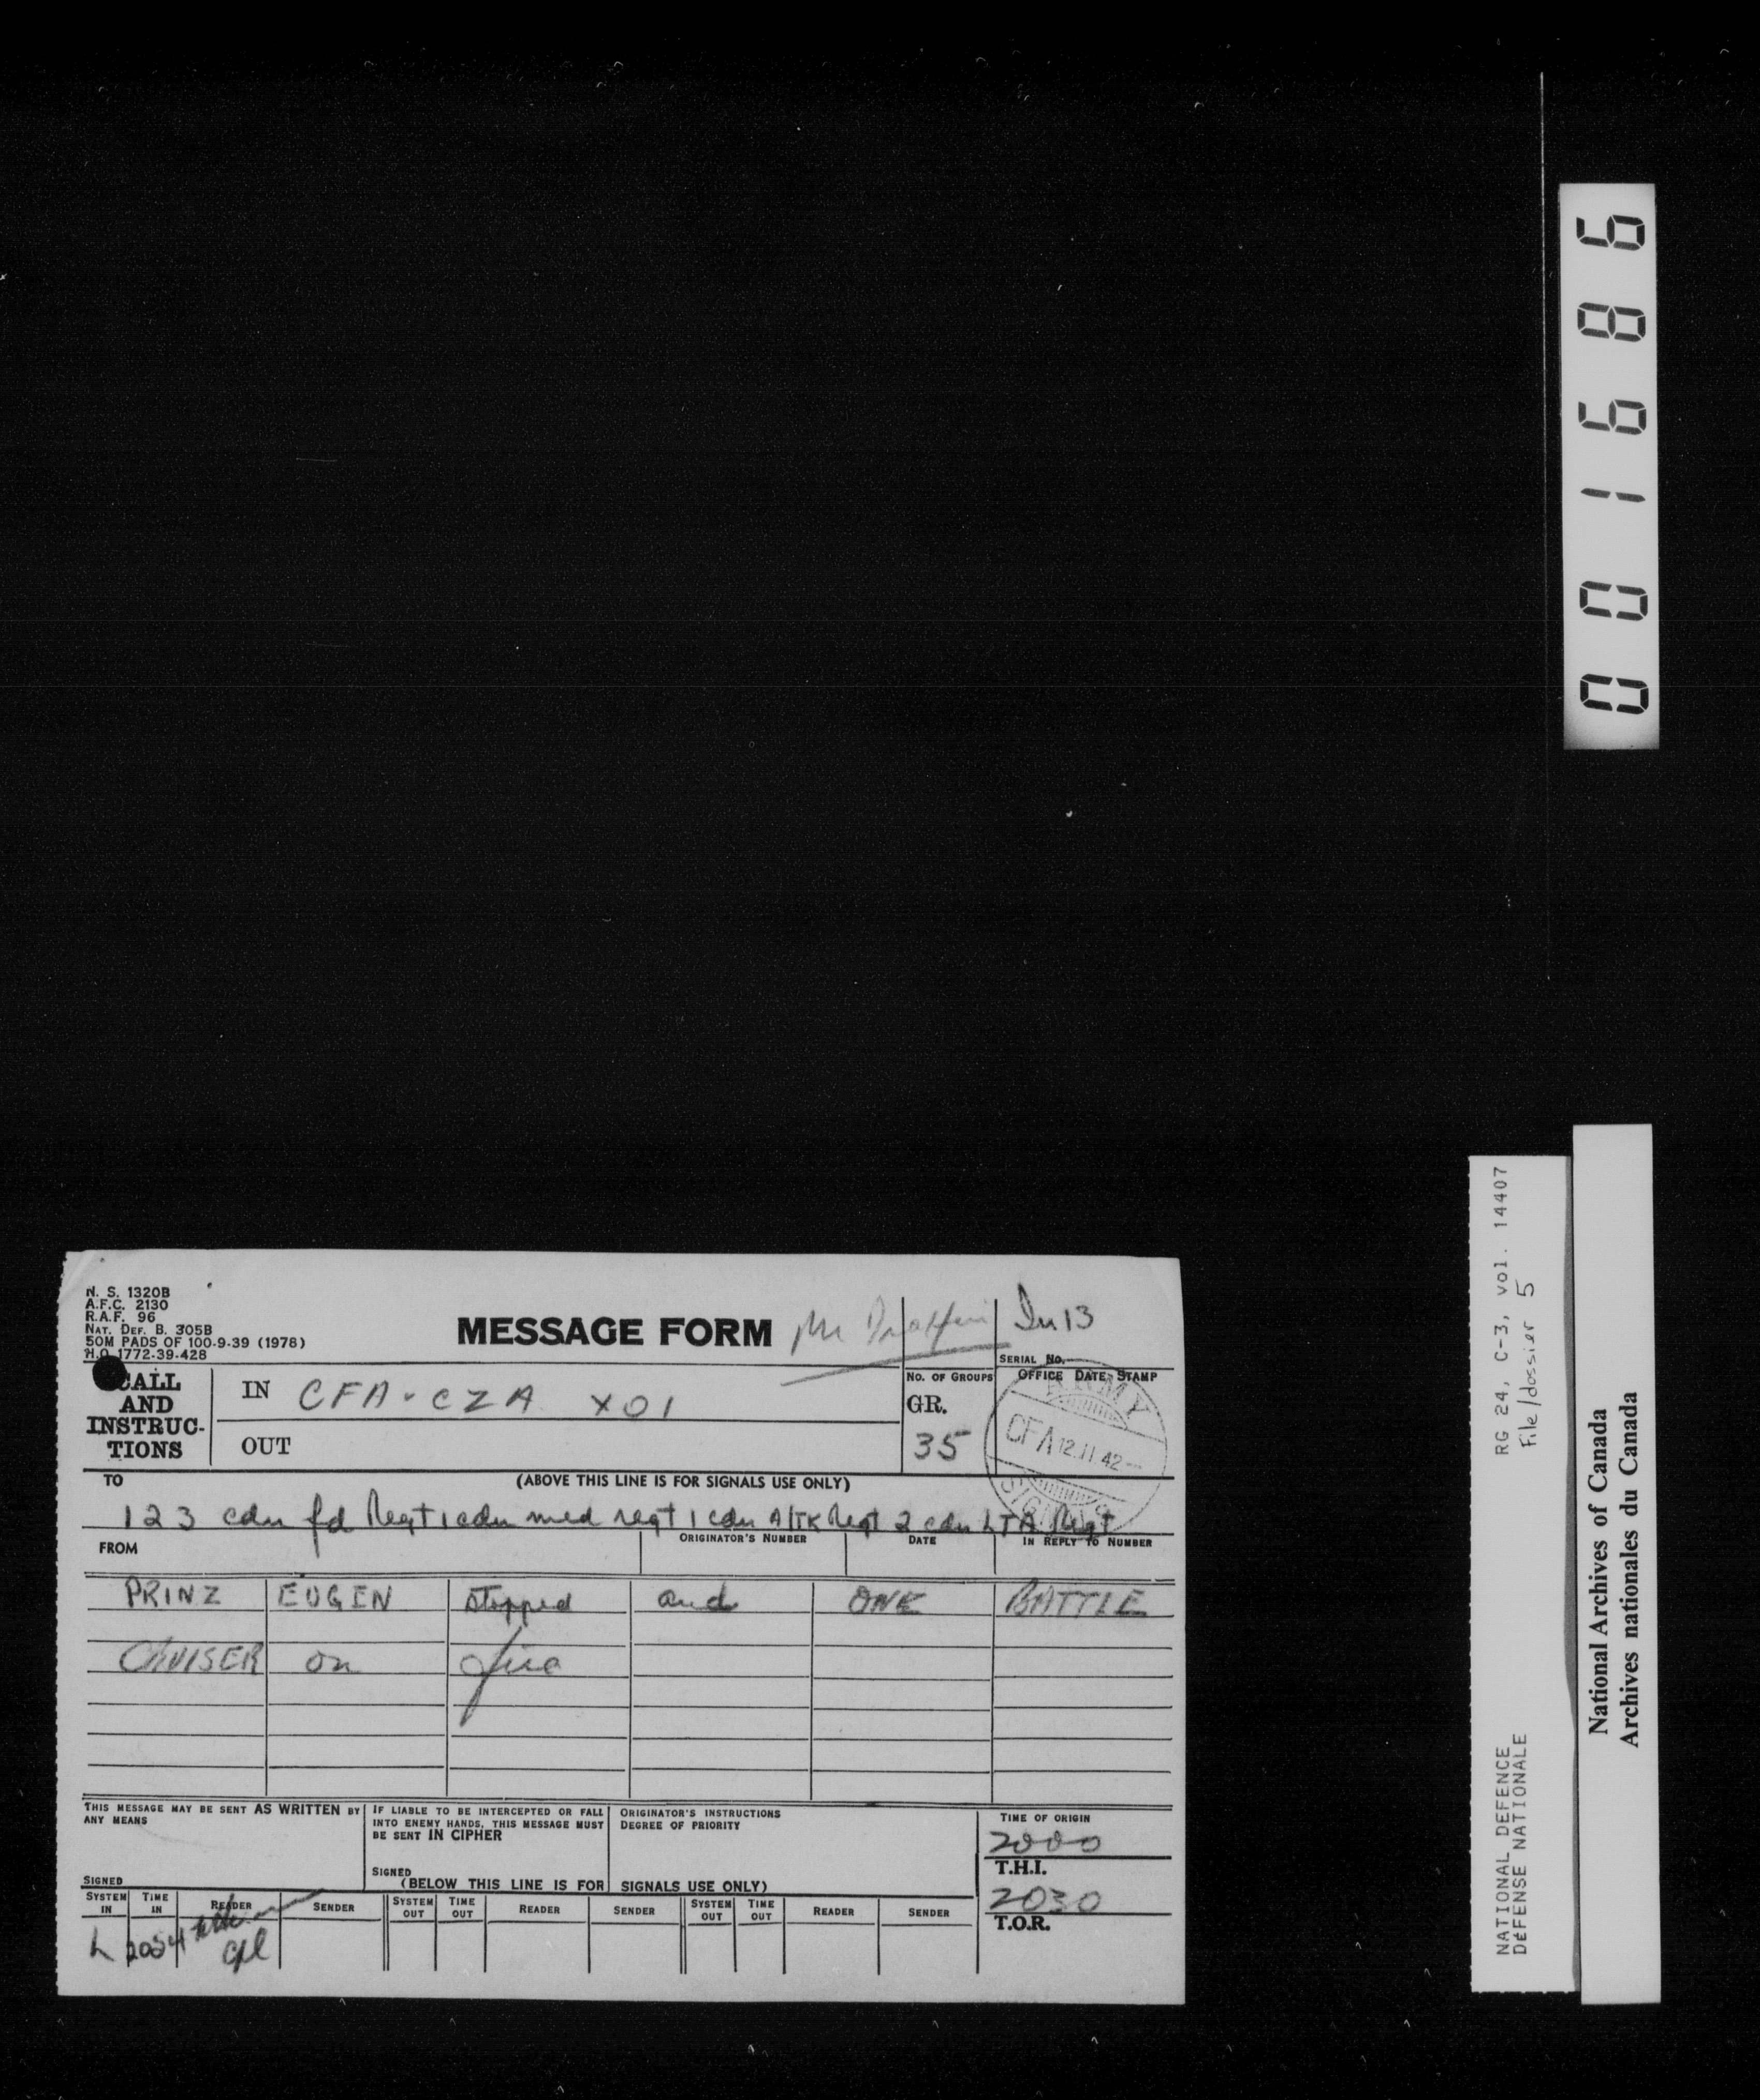 001686
N. S. 1320B
A.F.C. 2130
R.A.F. 96
NAT. DEF. B. 305B
50M PADS OF 100-9-39 (1978)
H.Q. 1772-39-428
MESSAGE FORM
In 13
SERIAL NO.
CALL AND INSTRUC-TIONS
IN CFA - CZA X01
OUT
NO. OF GROUPS
GR.
35
OFFICE DATE STAMP
ARMY
CFA 12.11.42
SIGNALS
TO
(ABOVE THIS LINE IS FOR SIGNALS USE ONLY)
1 2 3 cdn fd Regt 1 cdn med regt 1 cdn A/TK Regt 2 cdn LTA Regt
FROM
ORIGINATOR'S NUMBER
DATE
IN REPLY TO NUMBER
PRINZ EUGEN stopped and ONE BATTLE
CRUISER on fire
THIS MESSAGE MAY BE SENT AS WRITTEN BY
ANY MEANS
SIGNED
IF LIABLE TO BE INTERCEPTED OR FALL
INTO ENEMY HANDS, THIS MESSAGE MUST
BE SENT IN CIPHER
SIGNED
ORIGINATOR'S INSTRUCTIONS
DEGREE OF PRIORITY
TIME OF ORIGIN
2000
T.H.I.
2030
T.O.R.
(BELOW THIS LINE IS FOR SIGNALS USE ONLY)
SYSTEM IN TIME IN READER SENDER SYSTEM OUT TIME OUT READER SENDER SYSTEM OUT TIME OUT READER SENDER
L 2054
Cpl
RG 24, C-3, vol. 14407
File/dossier 5
NATIONAL DEFENCE
DÉFENSE NATIONALE
National Archives of Canada
Archives nationales du Canada